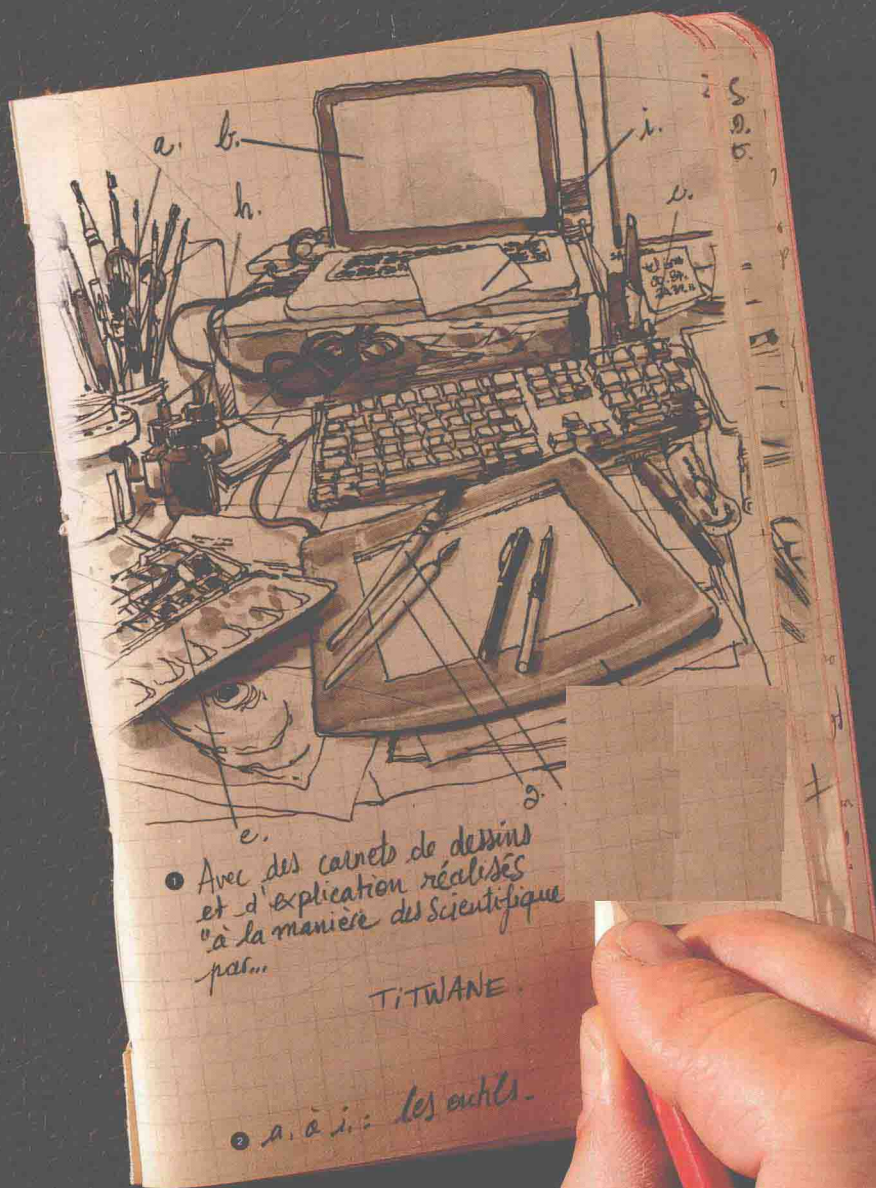 a.
b.
i.
h.
c.
g.
e.
❶ Avec des carnets de dessins
et d'explication réalisés
"à la manière des Scientifique
par...
TiTWANE.
❷ a. à i. : les outils.